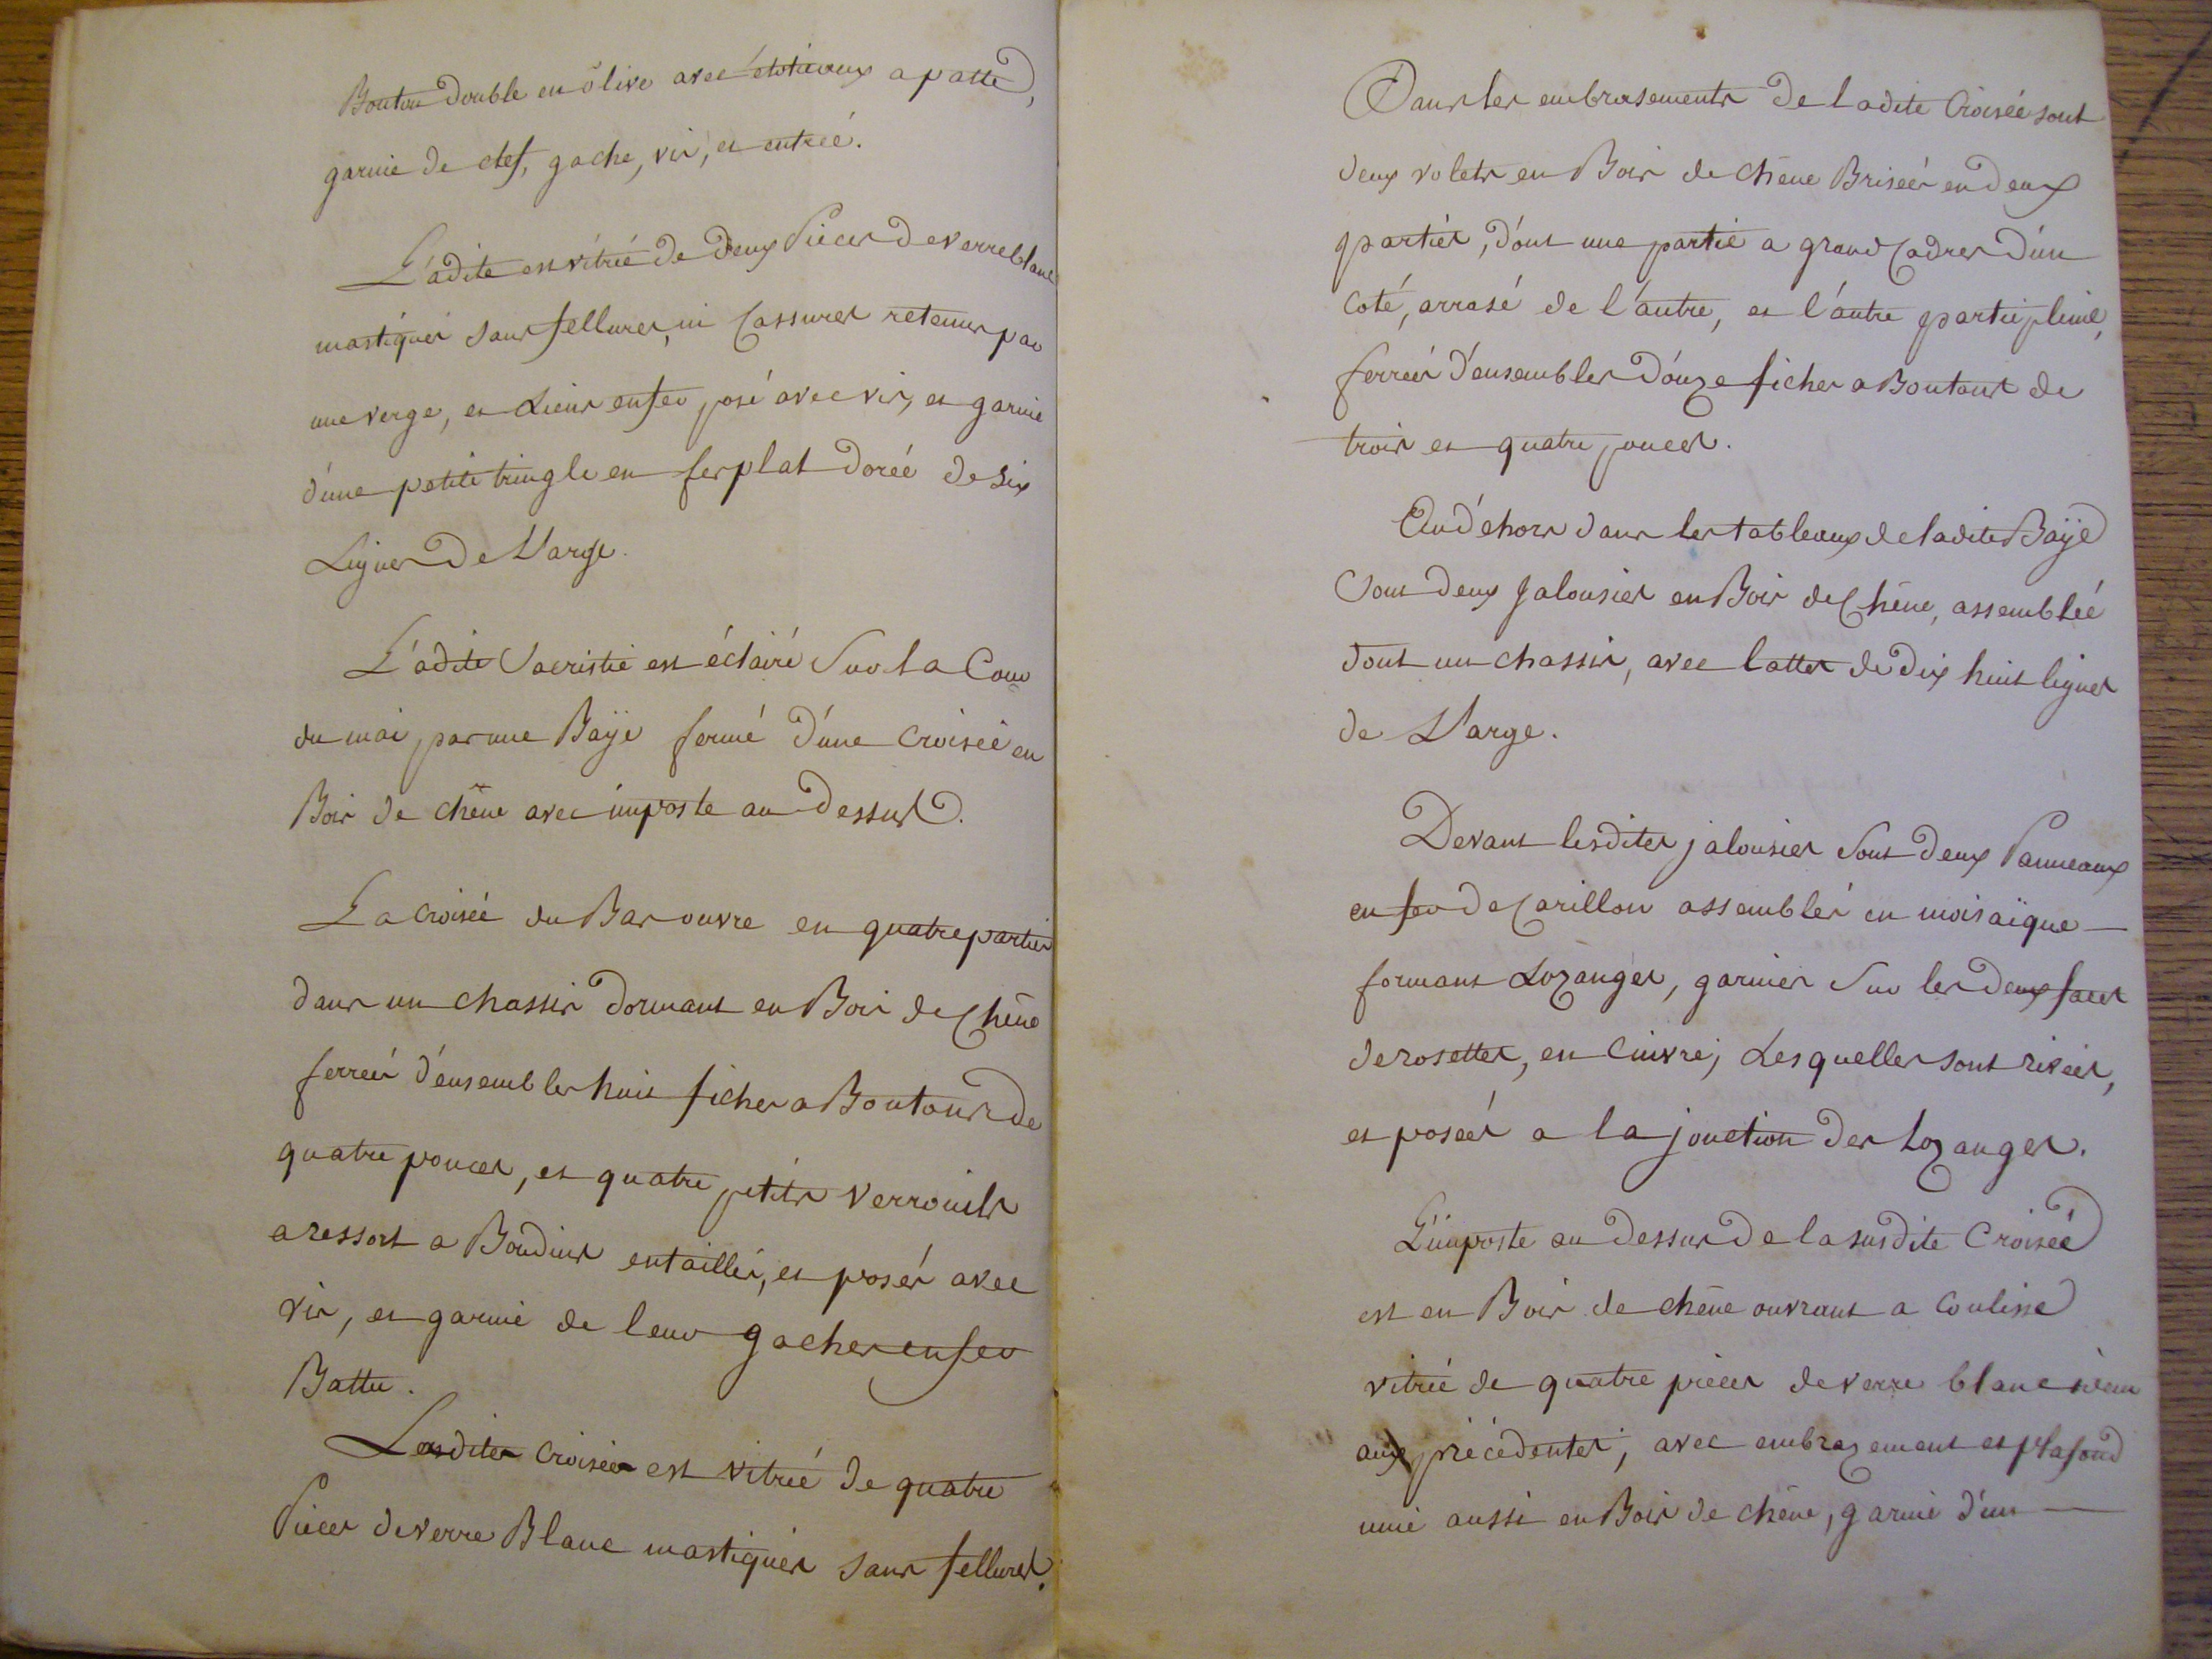 Bouton double en olive avec étotieaux a patte,
garnie de clef, gache, vis, et entreé.
L'adite est vitrée de deux Pieces de verre blanc
mastiqués sans fellures, ni Cassures retenues par
une verge, et Liens en fer posé avec vis, et garnie
d'une petite tringle en fer plat doreé de six
Lignes De Large.
L'adite Sacristie est éclairé Sur la Cour
du mai, par une Baÿe fermé d'une Croisée en
Bois de chêne avec imposte au Dessus.
La Croiséé du Bas ouvre en quatre parties
dans un chassis dormant en Bois de Chêne
ferreés d'ensembles huit fiches a Boutons de
quatre pouces, et quatre petits Verrouils
a ressort a Boudins entaillés, et posés avec
vis, et garnie de leur gaches en fer
Battu.
Lesdites Croisées est vitreé de quatre
Pieces de verre Blanc mastiqués sans fellures.
Dans les embrasements De ladite Croiséé sont
deux volets en Bois de Chêne Briseés en deux
parties, d'ont une partie a grand Cadres D'un
Coté, arrasé de l'autre, et l'autre partie pleine,
ferreés d'ensembles D'ouze fiches a Boutons de
trois et quatre pouces.
Au d'ehors dans les tableaux de ladite Baÿe
Sont deux Jalousies en Bois de Chêne, assembléé
dont un chassis, avec lattes de dix huit lignes
de Large.
Devant lesdites jalousies Sont deux Panneaux
en fer de Carillon assemblés en moisaïque
formant Lozanges, garnies Sur les deux faces
de rosettes, en Cuivre, Lesquelles sont riveés,
et poseés a la jonction des Lozanges.
L'imposte au Dessus De la susdite Croiséé
est en Bois de chêne ouvrant a Coulisse
vitreé de quatre pieces de verre blanc idem
aux précédentes, avec embrazement et plafond
unie aussi en Bois de chêne, garnie d'un